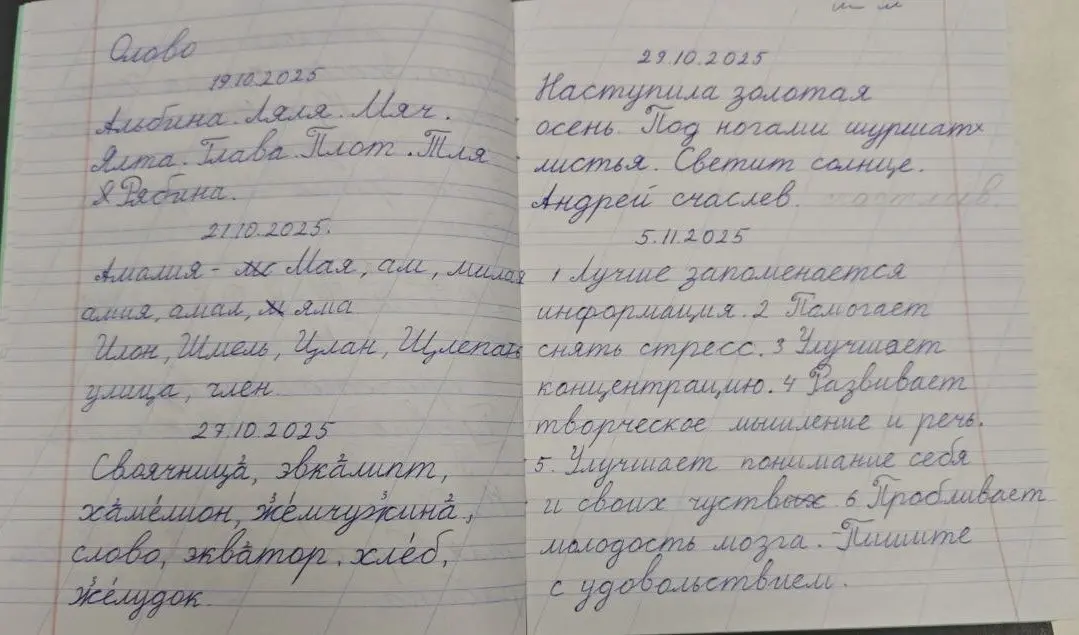 Олово
19.10.2025
Альбина. Ляля. Мяч.
Ялта. Глава. Плот. Тля
Рябина.
21.10.2025.
Амалия - Мая, ам, милая
амия, амал, яма
Шмель, Щлепать
улица, член.
27.10.2025
Своячница, эвкалипт,
хамелион, жемчужина,
слово, экватор, хлеб,
желудок.
29.10.2025
Наступила золотая
осень. Под ногами шуршат
листья. Светит солнце.
Андрей счаслев.
5.11.2025
1 Лучше запоменается
информация. 2 Помогает
снять стресс. 3 Улучшает
концентрацию. 4 Развивает
творческое мышление и речь.
5. Улучшает понимание себя
и своих чуствых 6 Пробливает
молодость мозга. -Пишите
с удовольствием.